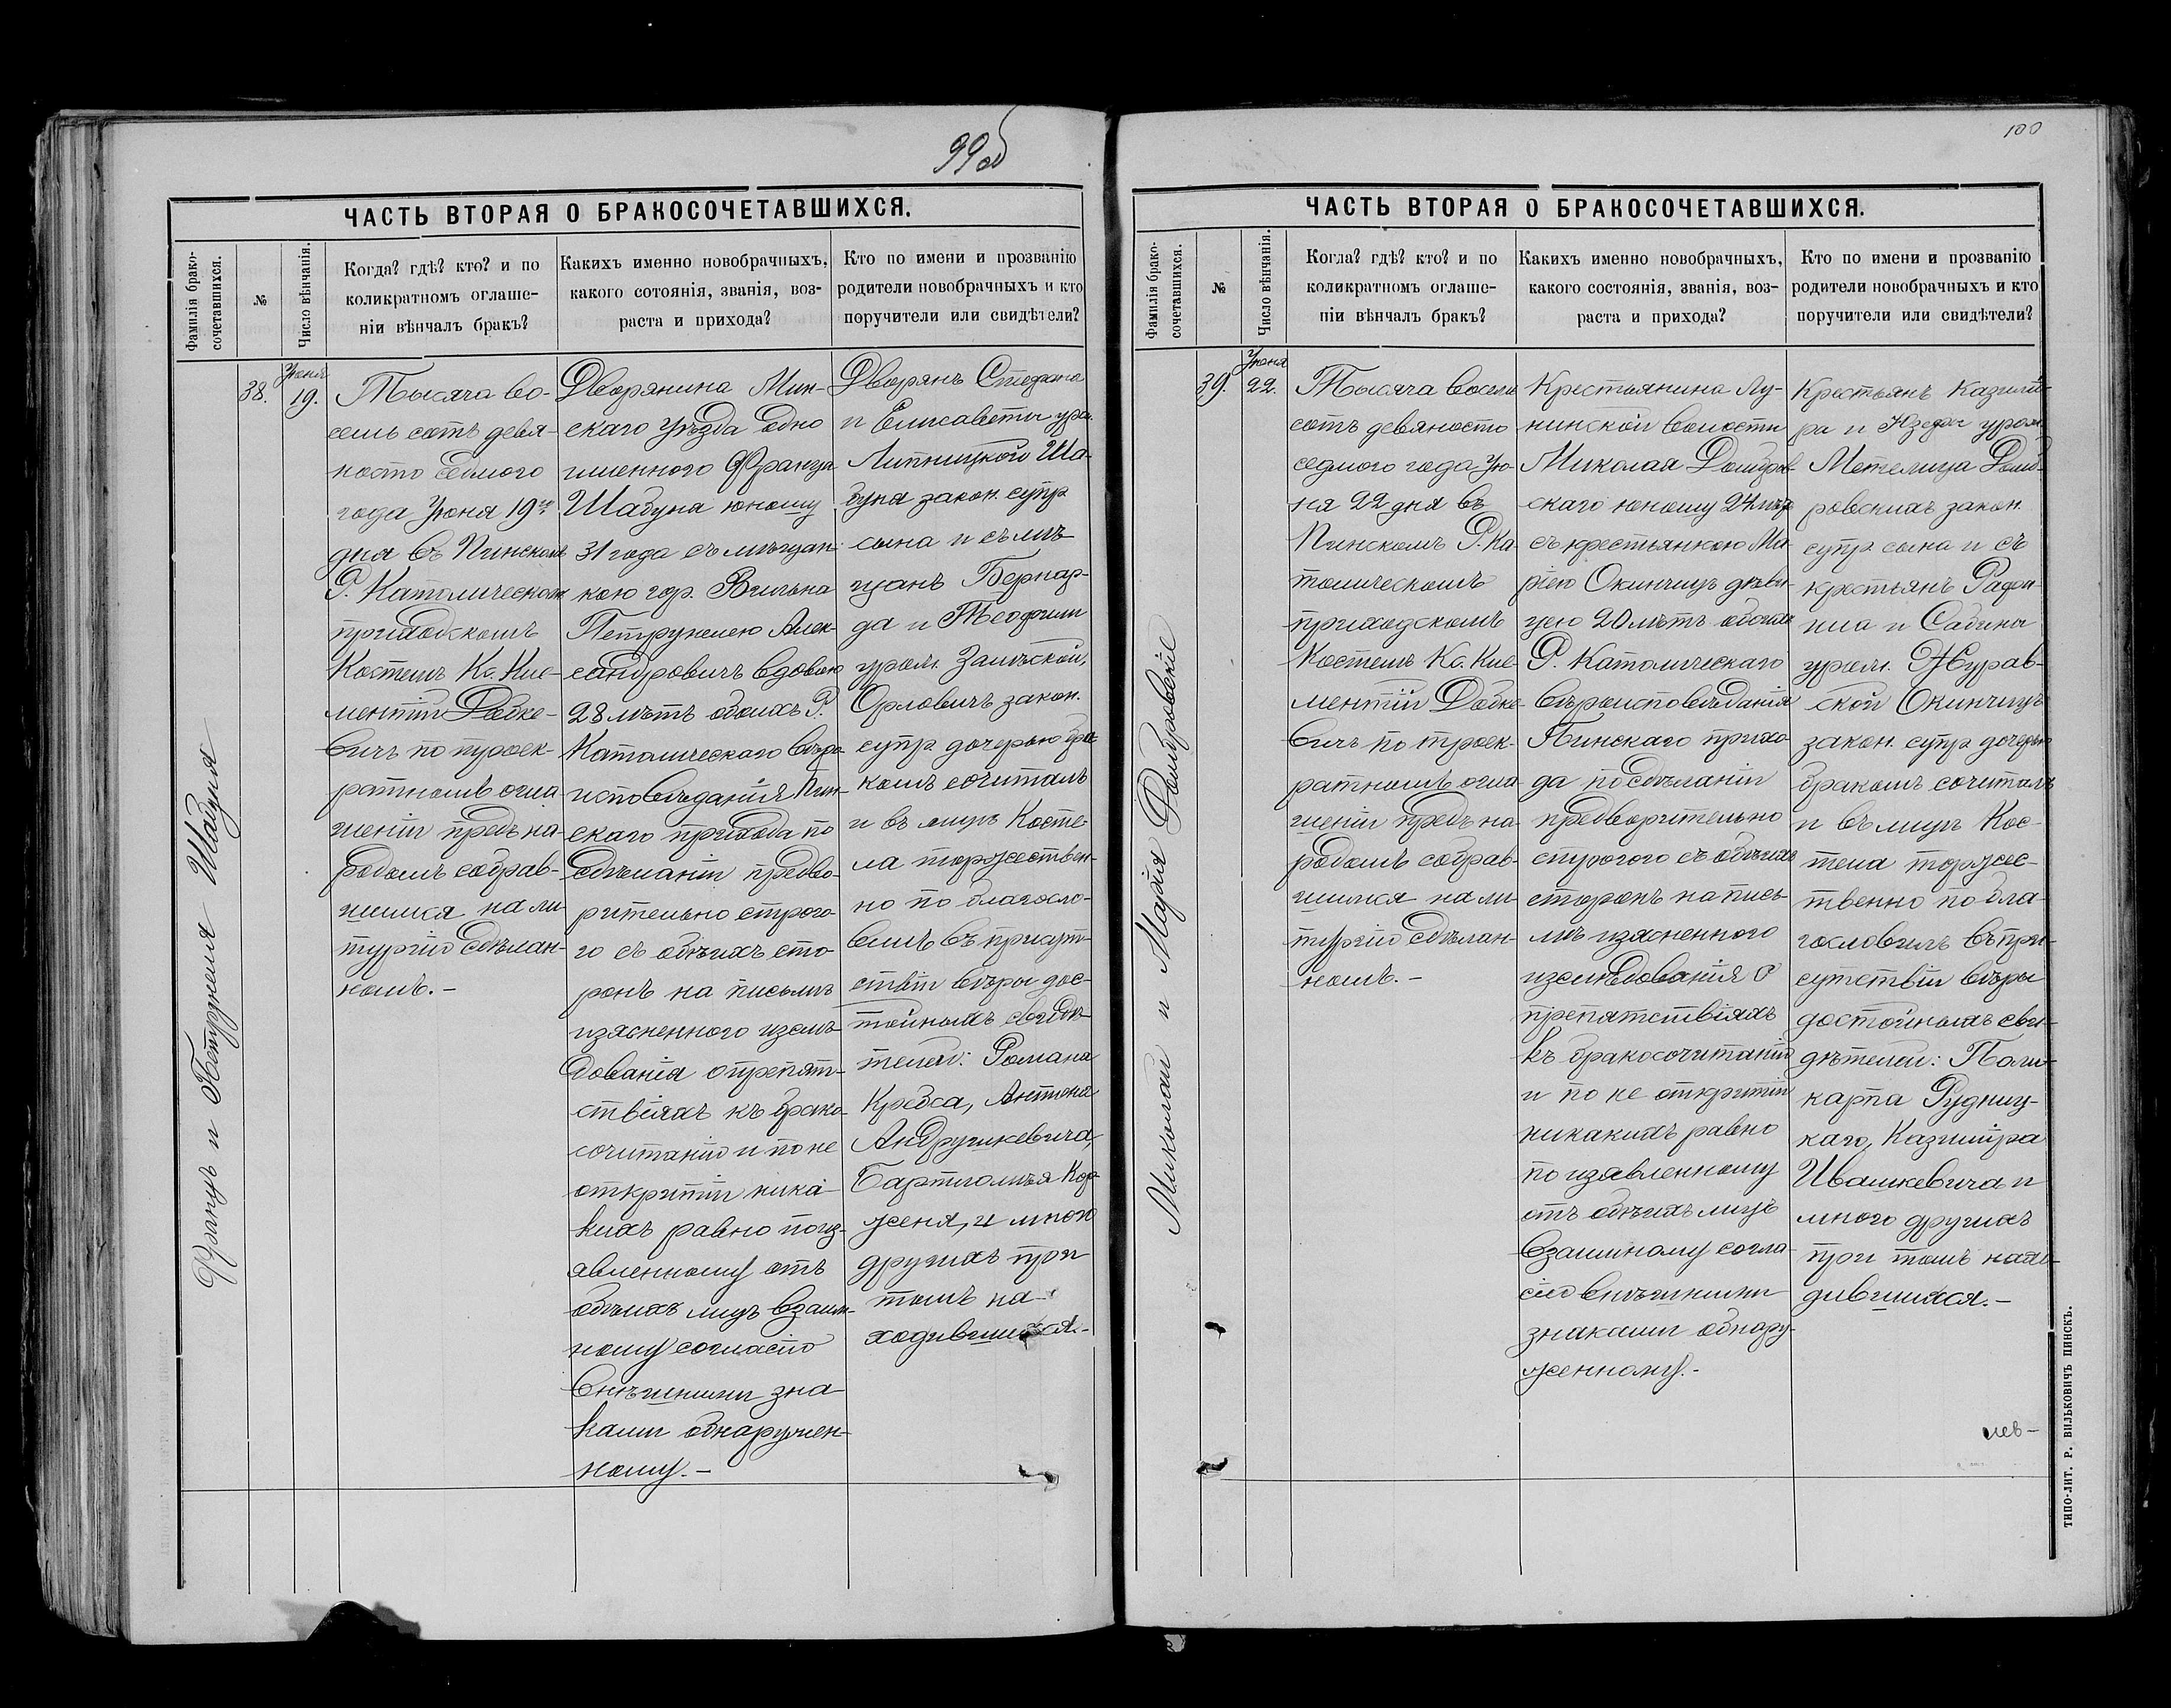 99 об
ЧАСТЬ ВТОРАЯ О БРАКОСОЧЕТАВШИХСЯ.
Фамилія брако-
сочетавшихся.
№
Число вѣнчанія.
Когда? гдѣ? кто? и по
коликратномъ оглаше-
ніи вѣнчалъ бракъ?
Какихъ именно новобрачныхъ,
какого сотоянія, званія, воз-
раста и прихода?
Кто по имени и прозванію
родители новобрачныхъ и кто
поручители или свидѣтели?
Францъ и Петрунеля Шабуня
38.
Іюня
19.
Тысяча во-
семь сотъ девя-
носто седмого
года Іюня 19го
дня въ Пинскомъ
Р. Католическомъ
приходскомъ
Костелѣ Кс. Кле-
ментій Довке-
вичъ по троек-
ратномъ огла-
шеніи предъ на-
родомъ собрав-
шимся на ли
тургію сдѣлан-
номъ.-
Дворянина Мин-
скаго уѣзда одно
именного Франца
Шабуна юношу
31 года съ мѣщан-
кою гор. Вильна
Петрунелею Алек-
сандровичъ вдовою
28 лѣтъ обоихъ Р.
Католическаго вѣро
исповѣданія Пин-
скаго прихода по
сдѣланіи предво-
рительно строго-
го съ обѣихъ сто
ронъ на письмѣ
изясненного изслѣ-
дованія о препят-
ствіяхъ къ брако-
сочитанію и по не
открытіи ника-
кихъ равно по из-
явленному отъ
обѣихъ лицъ взаим-
ному согласію
внѣшними зна-
ками обнаружен-
ному.-
Дворянъ Стефана
и Елисаветы урож.
Липницкой Ша-
буня закон. супр
сына и съ мѣ-
щанъ Бернар-
да и Теофили
урож.
Орловичъ закон.
супр дочерью бра-
комъ сочиталъ
и въ лицѣ Косте-
ла торжествен-
но по благосло-
вилъ въ присут-
ствіи вѣры дос-
тойныхъ свидѣ-
телей: Романа
Кребса, Антона
Андрушкевича,
Бартоломѣя Кор-
женя, и много
другихъ при
томъ на-
ходившихся.-
100
ЧАСТЬ ВТОРАЯ О БРАКОСОЧЕТАВШИХСЯ.
Фамилія брако-
сочетавшихся.
№
Число вѣнчанія.
Когла? гдѣ? кто? и по
коликратномъ оглаше-
ніи вѣнчалъ бракъ?
Какихъ именно новобрачныхъ,
какого состоянія, званія, воз-
раста и прихода?
Кто по имени и прозванію
родители новобрачныхъ и кто
поручители или свидѣтели?
Миколай и Марія Домбровскіе
39.
Іюня
22.
Тысяча восемь
сотъ девяносто
седмого года Ію-
ня 22 дня въ
Пинскомъ Р. Ка-
толическомъ
приходскомъ
Костелѣ Кс. Кле-
ментій Довке-
вичъ по троек-
ратномъ огла-
шеніи предъ на-
родомъ собрав-
шимся на ли
тургію сдѣлан-
номъ.-
Крестьянина Лу-
нинской волости
Миколая Домбров-
скаго юношу 24 лѣтъ
съ крестьянкою Ма-
ріею Окинчицъ дѣви-
цею 20 лѣтъ обоихъ
Р. Католическаго
вѣроисповѣданія
Пинскаго прихо-
да по сдѣланіи
предворительно
строгого съ обѣихъ
сторонъ на пись-
мѣ изясненного
изслѣдованія о
препятствіяхъ
къ бракосочитанію
и по не открытіи
никакихъ равно
по изявленному
отъ обѣихъ лицъ
взаимному согла-
сію внѣшними
знаками обнару-
женному.-
Крестьянъ Казими-
ра и Юзефы урож
Метелица Домб-
ровскихъ закон.
супр. сына и съ
крестьянъ Рафа-
ила и Сабины
урож. Журав-
ской Окинчицъ
закон. супр дочерью
бракомъ сочиталъ
и въ лицѣ Кос-
тела торжес-
твенно по бла
гословилъ въ при-
сутствіи вѣры
достойныхъ сви-
дѣтелей: Поли-
карпа Рудниц-
каго, Казиміра
Ивашкевича и
много другихъ
при томъ нахо-
дившихся.-
ТИПО-ЛИТ. Р. ВИЛЬКОВИЧЪ ПИНСКЪ.